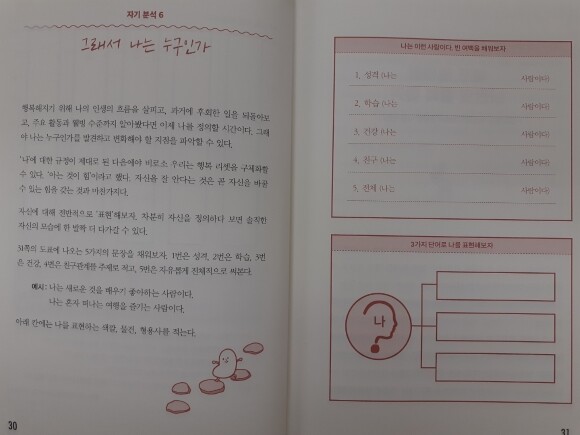 자기 분석 6
그래서 나는 누구인가
행복해지기 위해 나의 인생의 흐름을 살피고, 과거에 후회한 일을 되돌아보
고, 주요 활동과 웰빙 수준까지 알아봤다면 이제 나를 정의할 시간이다. 그래
야 나는 누구인가를 발견하고 변화해야 할 지점을 파악할 수 있다.
'나'에 대한 규정이 제대로 된 다음에야 비로소 우리는 행복 리셋을 구체화할
수 있다. '아는 것이 힘'이라고 했다. 자신을 잘 안다는 것은 곧 자신을 바꿀
수 있는 힘을 갖는 것과 마찬가지다.
자신에 대해 전반적으로 '표현'해보자. 차분히 자신을 정의하다 보면 솔직한
자신의 모습에 한 발짝 더 다가갈 수 있다.
31쪽의 도표에 나오는 5가지의 문장을 채워보자. 1번은 성격, 2번은 학습, 3번
은 건강, 4번은 친구관계를 주제로 적고, 5번은 자유롭게 전체적으로 써본다.
예시: 나는 새로운 것을 배우기 좋아하는 사람이다.
나는 혼자 떠나는 여행을 즐기는 사람이다.
아래 칸에는 나를 표현하는 색깔, 물건, 형용사를 적는다.
30
나는 이런 사람이다, 빈 여백을 채워보자
1. 성격 (나는 사람이다)
2. 학습 (나는 사람이다)
3. 건강 (나는 사람이다)
4. 친구 (나는 사람이다)
5. 전체 (나는 사람이다)
3가지 단어로 나를 표현해보자
나
31